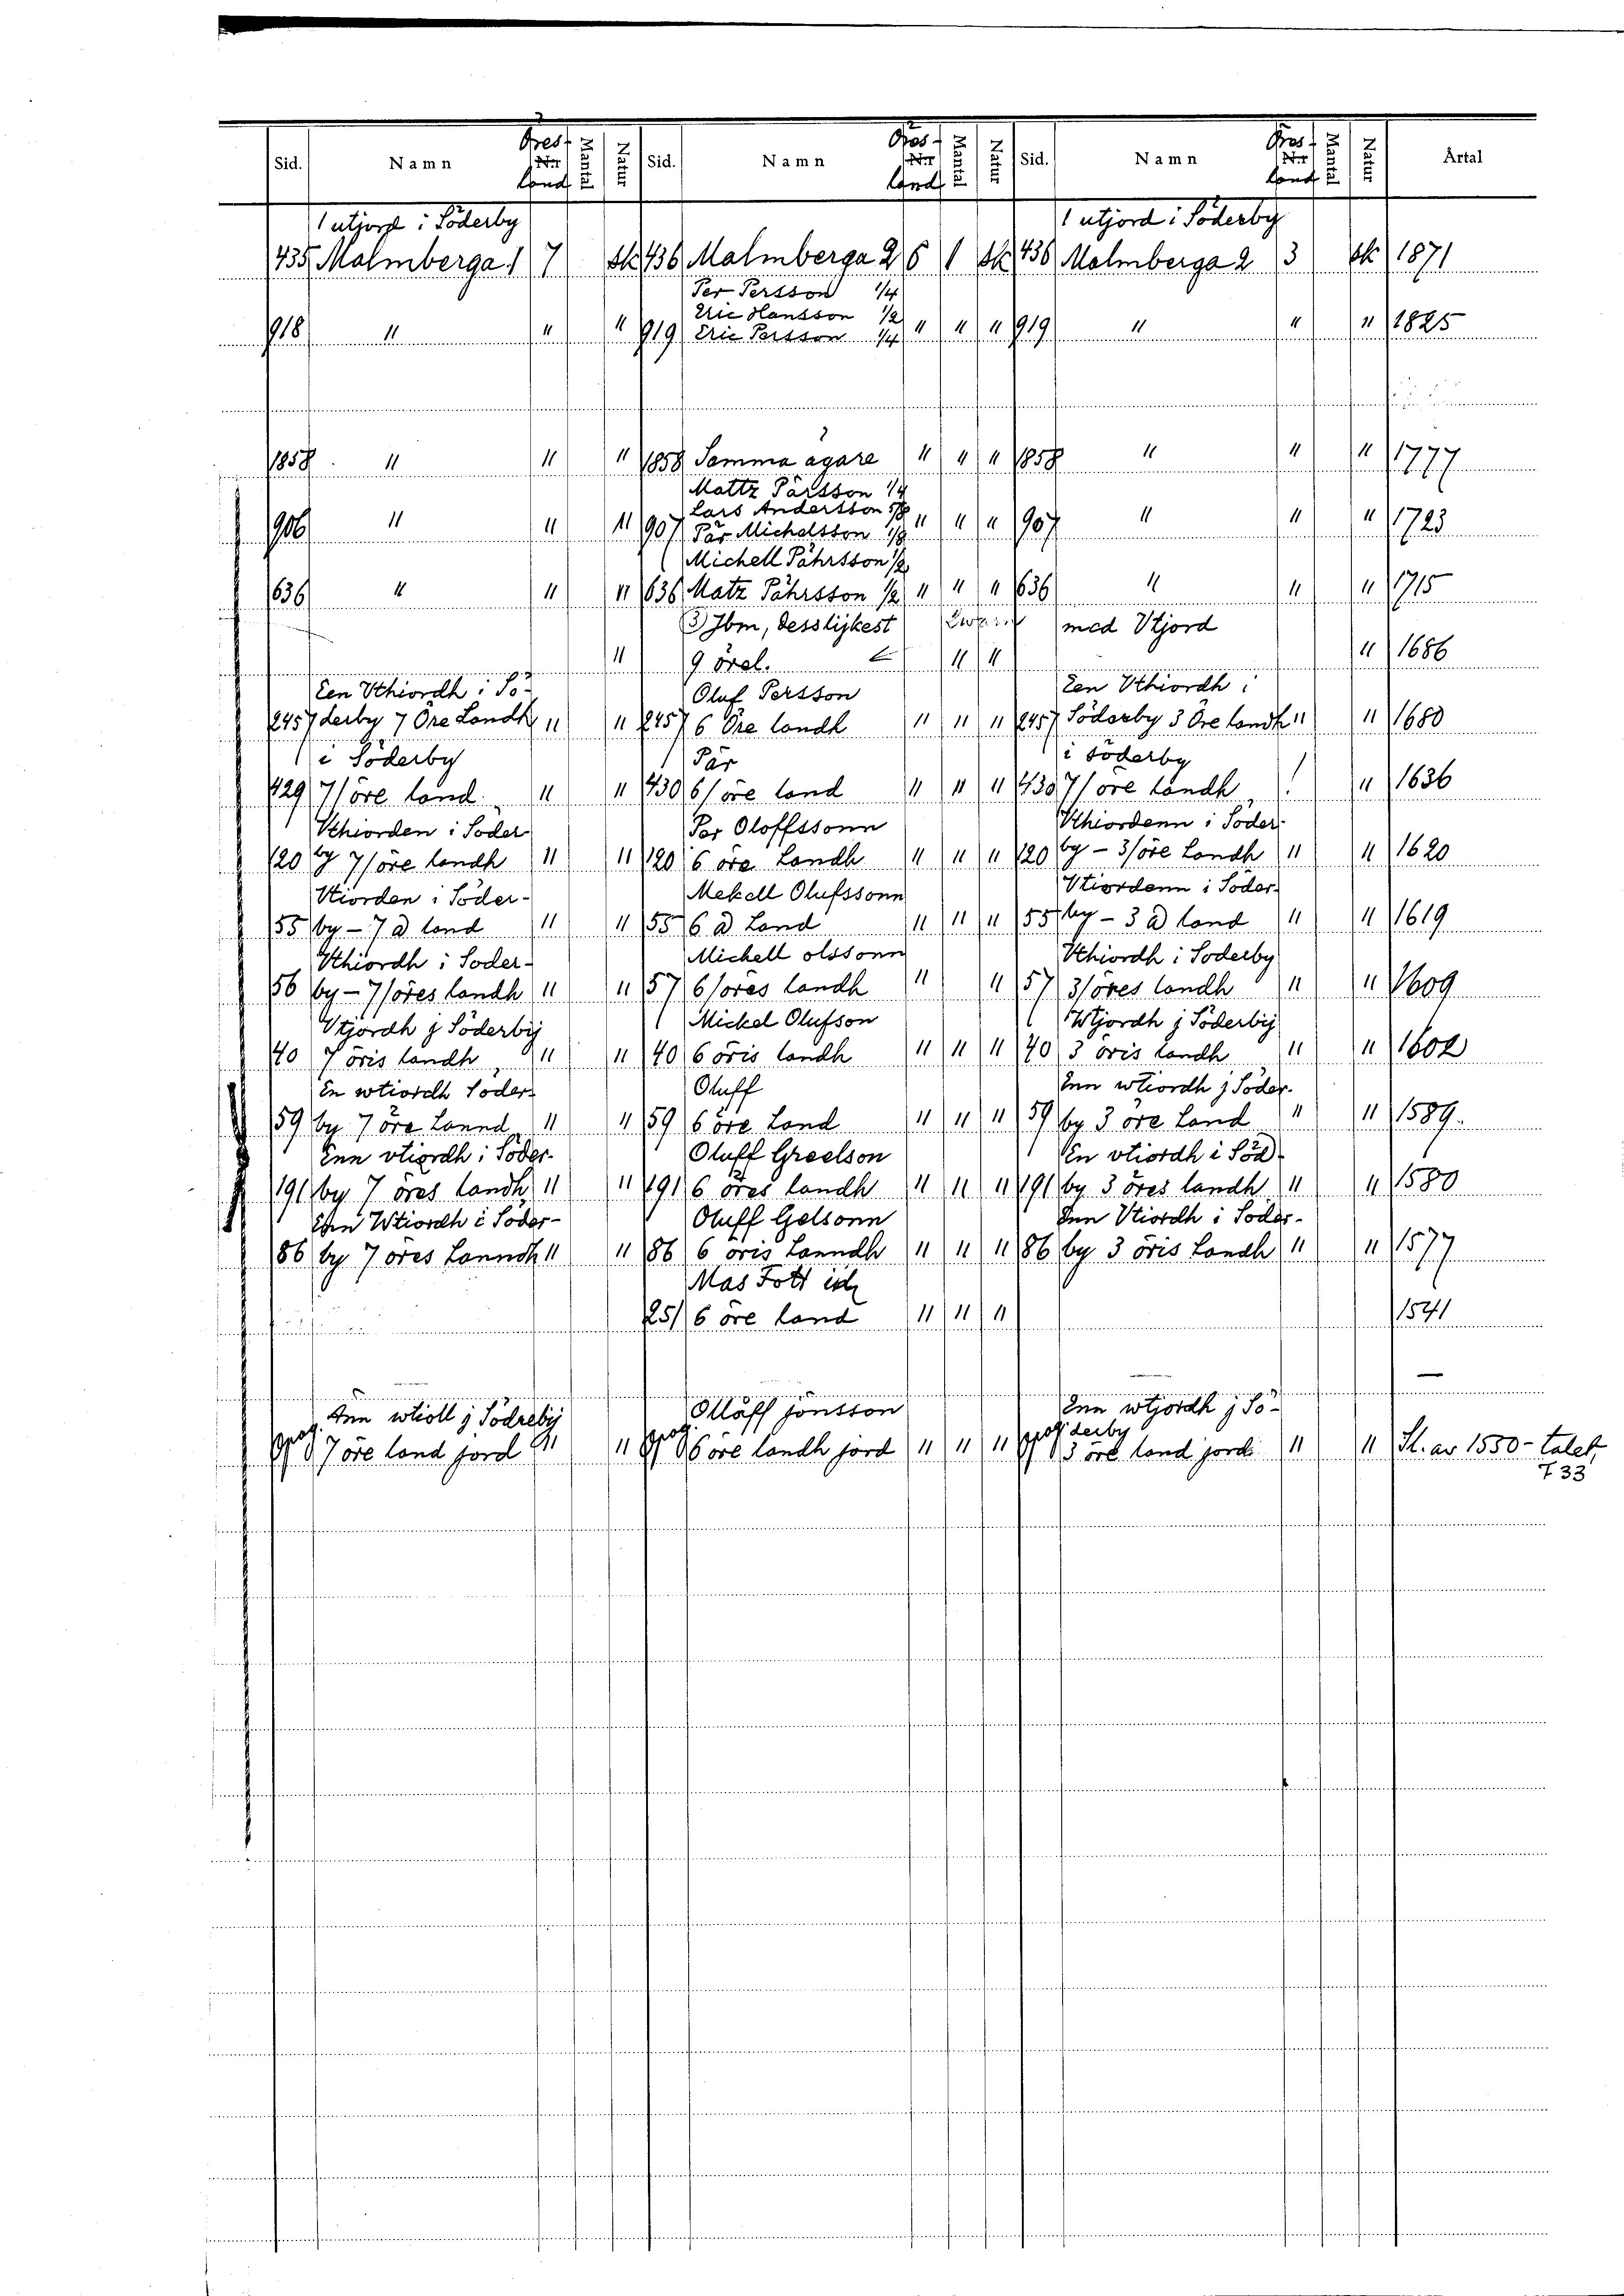 Sid. Namn Öres land Mantal Natur Sid. Namn Öres land Mantal Natur Sid. Namn Öres land Mantal Natur Årtal
1 utjord i Söderby 1 utjord i Söderby
435 Malmberga 1 7 sk 436 Malmberga 2 6 1 sk 436 Malmberga 2 3 sk 1871
Per Persson 1/4
Eric Hansson 1/2
918 " " " 919 Eric Persson 1/4 " " " 919 " " " 1825
1858 " " " 1858 Samma ägare " " " 1858 " " " 1777
Mattz Pärsson 1/4
Lars Andersson 5/8
906 " " " 907 Pär Michelsson 1/8 " " " 907 " " " 1723
Michell Påhrsson 1/2
636 " " " 636 Matz Påhrsson 1/2 " " " 636 " " " 1715
3 Ibm, desslijkest med Vtjord
" 9 örel. " " " 1686
Een Vthiordh i Sö- Oluf Persson Een Vthiordh i
2457 derby 7 Öre Landh " " 2457 6 Öre landh " " " 2457 Söderby 3 Öre landh " " 1680
i Söderby Pär i söderby
429 7/öre land " " 430 6/öre land " " " 430 7/öre landh ! " 1636
Vthiorden i Söder Per Oloffssonn Vthiordenn i Söder-
120 by 7/öre landh " " 120 6 öre Landh " " " 120 by - 3/öre Landh " " 1620
Vtiorden i Söder- Mekell Olufssonn Vtiordenn i Söder-
55 by - 7 ö land " " 55 6 ö Land " " " 55 by - 3 ö land " " 1619
Vthiordh i Soder- Michell olssonn Vthiordh i Soderby
56 by - 7/öres landh " " 57 6/öres landh " " 57 3/öres landh " " 1609
Vtjordh j Söderbij Mickel Olufson Wtjordh j Söderbij
40 7 öris landh " " 40 6 öris landh " " " 40 3 öris landh " " 1602
En wtiordh Söder- Oluff Enn wtiordh j Söder-
59 by 7 öre Lannd " " 59 6 öre Land " " " 59 by 3 öre Land " " 1589.
Enn vtiordh i Söder- Oluff Greelson En vtiordh i Söd-
191 by 7 öres landh " " 191 6 öres landh " " " 191 by 3 öres landh " " 1580
Enn Wtiordh i Söder- Oluff Gelsonn Enn Vtiordh i Soder-
86 by 7 öres Lanndh " " 86 6 öris Lanndh " " " 86 by 3 öris Landh " " 1577
Mas Fott
25 6 öre land " " " 1541
Enn wtioll j Södrebij Olläff jönsson Enn wtjordh j Sö-
7 öre land jord " " 6 öre landh jord " " " derby 3 öre land jord " " Sl. av 1550-talet,
F 33